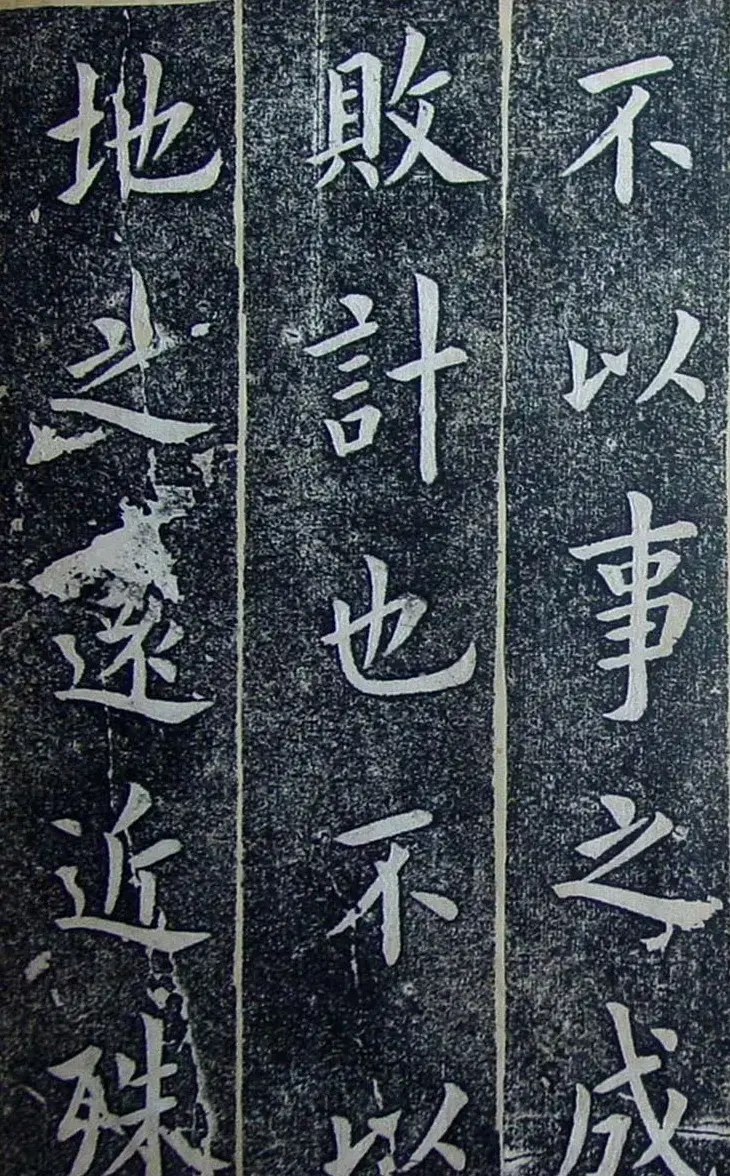 不以事之成
敗計也不以
地之遠近殊